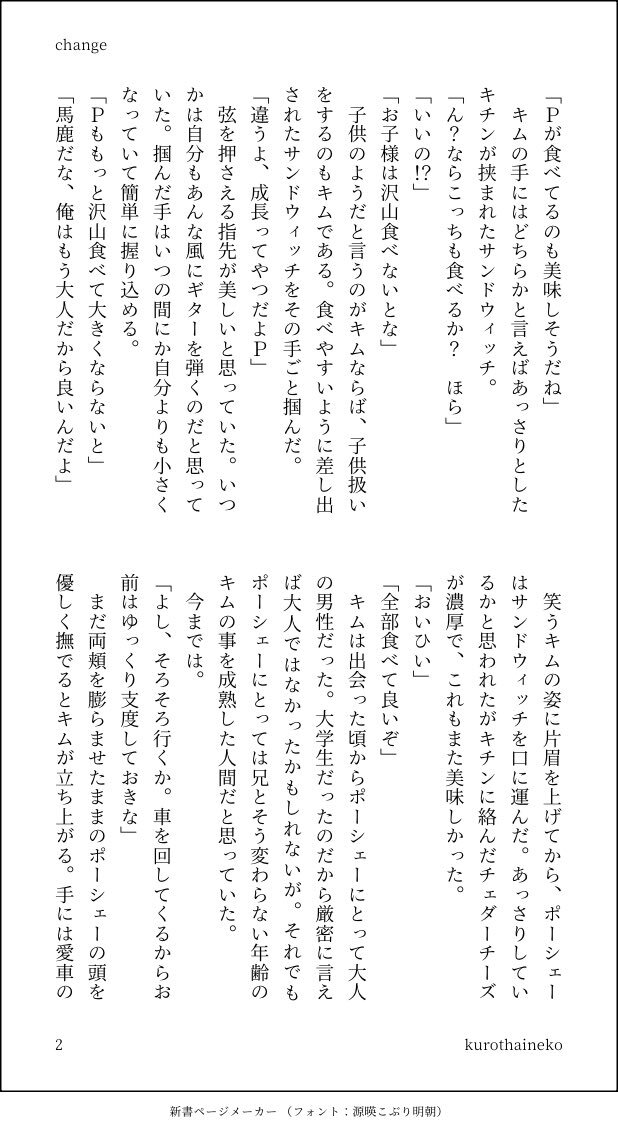 change
「Ｐが食べてるのも美味しそうだね」
　キムの手にはどちらかと言えばあっさりとした
キチンが挟まれたサンドウィッチ。
「ん？ならこっちも食べるか？　ほら」
「いいの!?」
「お子様は沢山食べないとな」
　子供のようだと言うのがキムならば、子供扱い
をするのもキムである。食べやすいように差し出
されたサンドウィッチをその手ごと掴んだ。
「違うよ、成長ってやつだよＰ」
　弦を押さえる指先が美しいと思っていた。いつ
かは自分もあんな風にギターを弾くのだと思って
いた。掴んだ手はいつの間にか自分よりも小さく
なっていて簡単に握り込める。
「Ｐももっと沢山食べて大きくならないと」
「馬鹿だな、俺はもう大人だから良いんだよ」
　笑うキムの姿に片眉を上げてから、ポーシェー
はサンドウィッチを口に運んだ。あっさりしてい
るかと思われたがキチンに絡んだチェダーチーズ
が濃厚で、これもまた美味しかった。
「おいひい」
「全部食べて良いぞ」
　キムは出会った頃からポーシェーにとって大人
の男性だった。大学生だったのだから厳密に言え
ば大人ではなかったかもしれないが。それでも
ポーシェーにとっては兄とそう変わらない年齢の
キムの事を成熟した人間だと思っていた。
　今までは。
「よし、そろそろ行くか。車を回してくるからお
前はゆっくり支度しておきな」
　まだ両頬を膨らませたままのポーシェーの頭を
優しく撫でるとキムが立ち上がる。手には愛車の
2
kurothaineko
新書ページメーカー（フォント：源暎こぶり明朝）